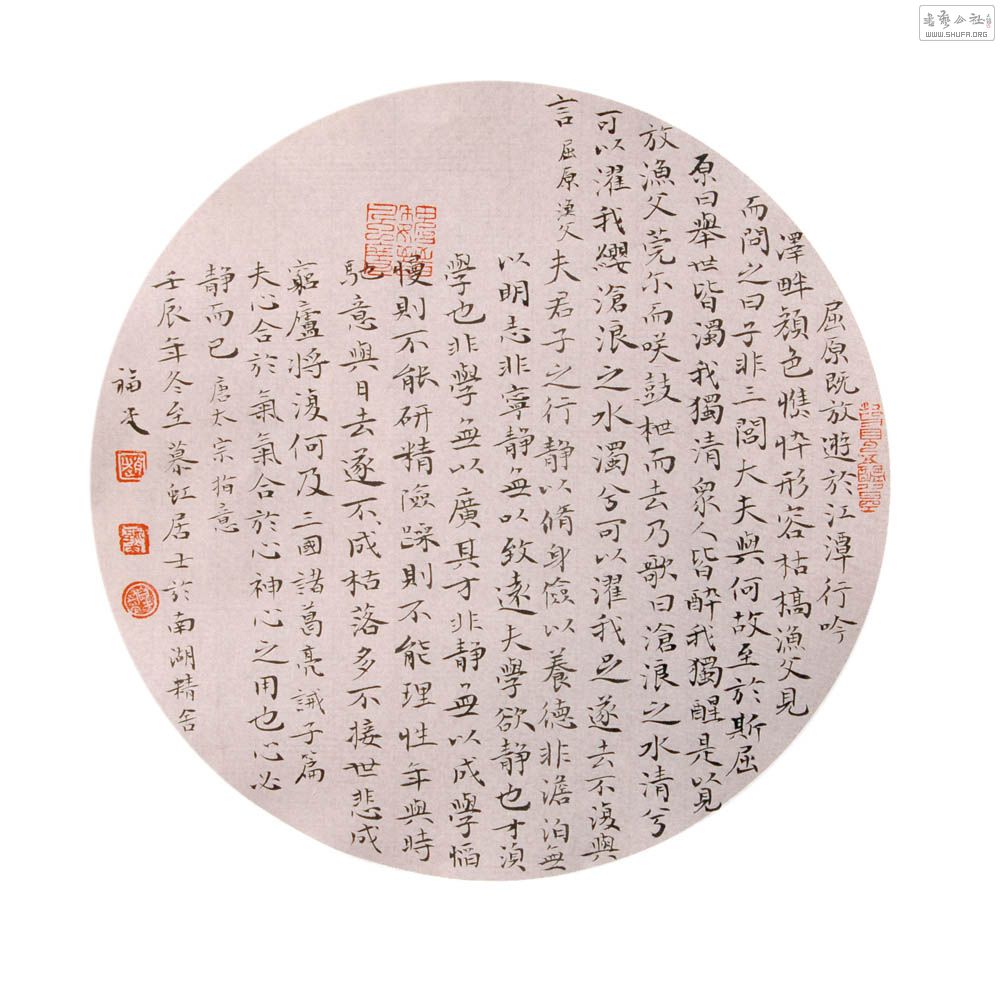 屈原既放遊於江潭行吟
澤畔顔色憔悴形容枯槁漁父見
而問之曰子非三閭大夫與何故至於斯屈
原曰舉世皆濁我獨清衆人皆醉我獨醒是以見
放漁父莞尔而咲鼓枻而去乃歌曰滄浪之水清兮
可以濯我纓滄浪之水濁兮可以濯我足遂去不復與
言 屈原漁父 夫君子之行静以脩身儉以養德非澹泊無
以明志非寧静無以致遠夫學欲静也才湏
學也非學無以廣其才非静無以成學慆
慢則不能研精險躁則不能理性年與時
馳意與日去遂不成枯落多不接世悲成
窮廬將復何及 三國諸葛亮誡子篇
夫心合於氣氣合於心神心之用也心必
静而已 唐太宗指意
壬辰年冬至慕虹居士於南湖精舍
福天
書藝公社
WWW.SHUFA.ORG